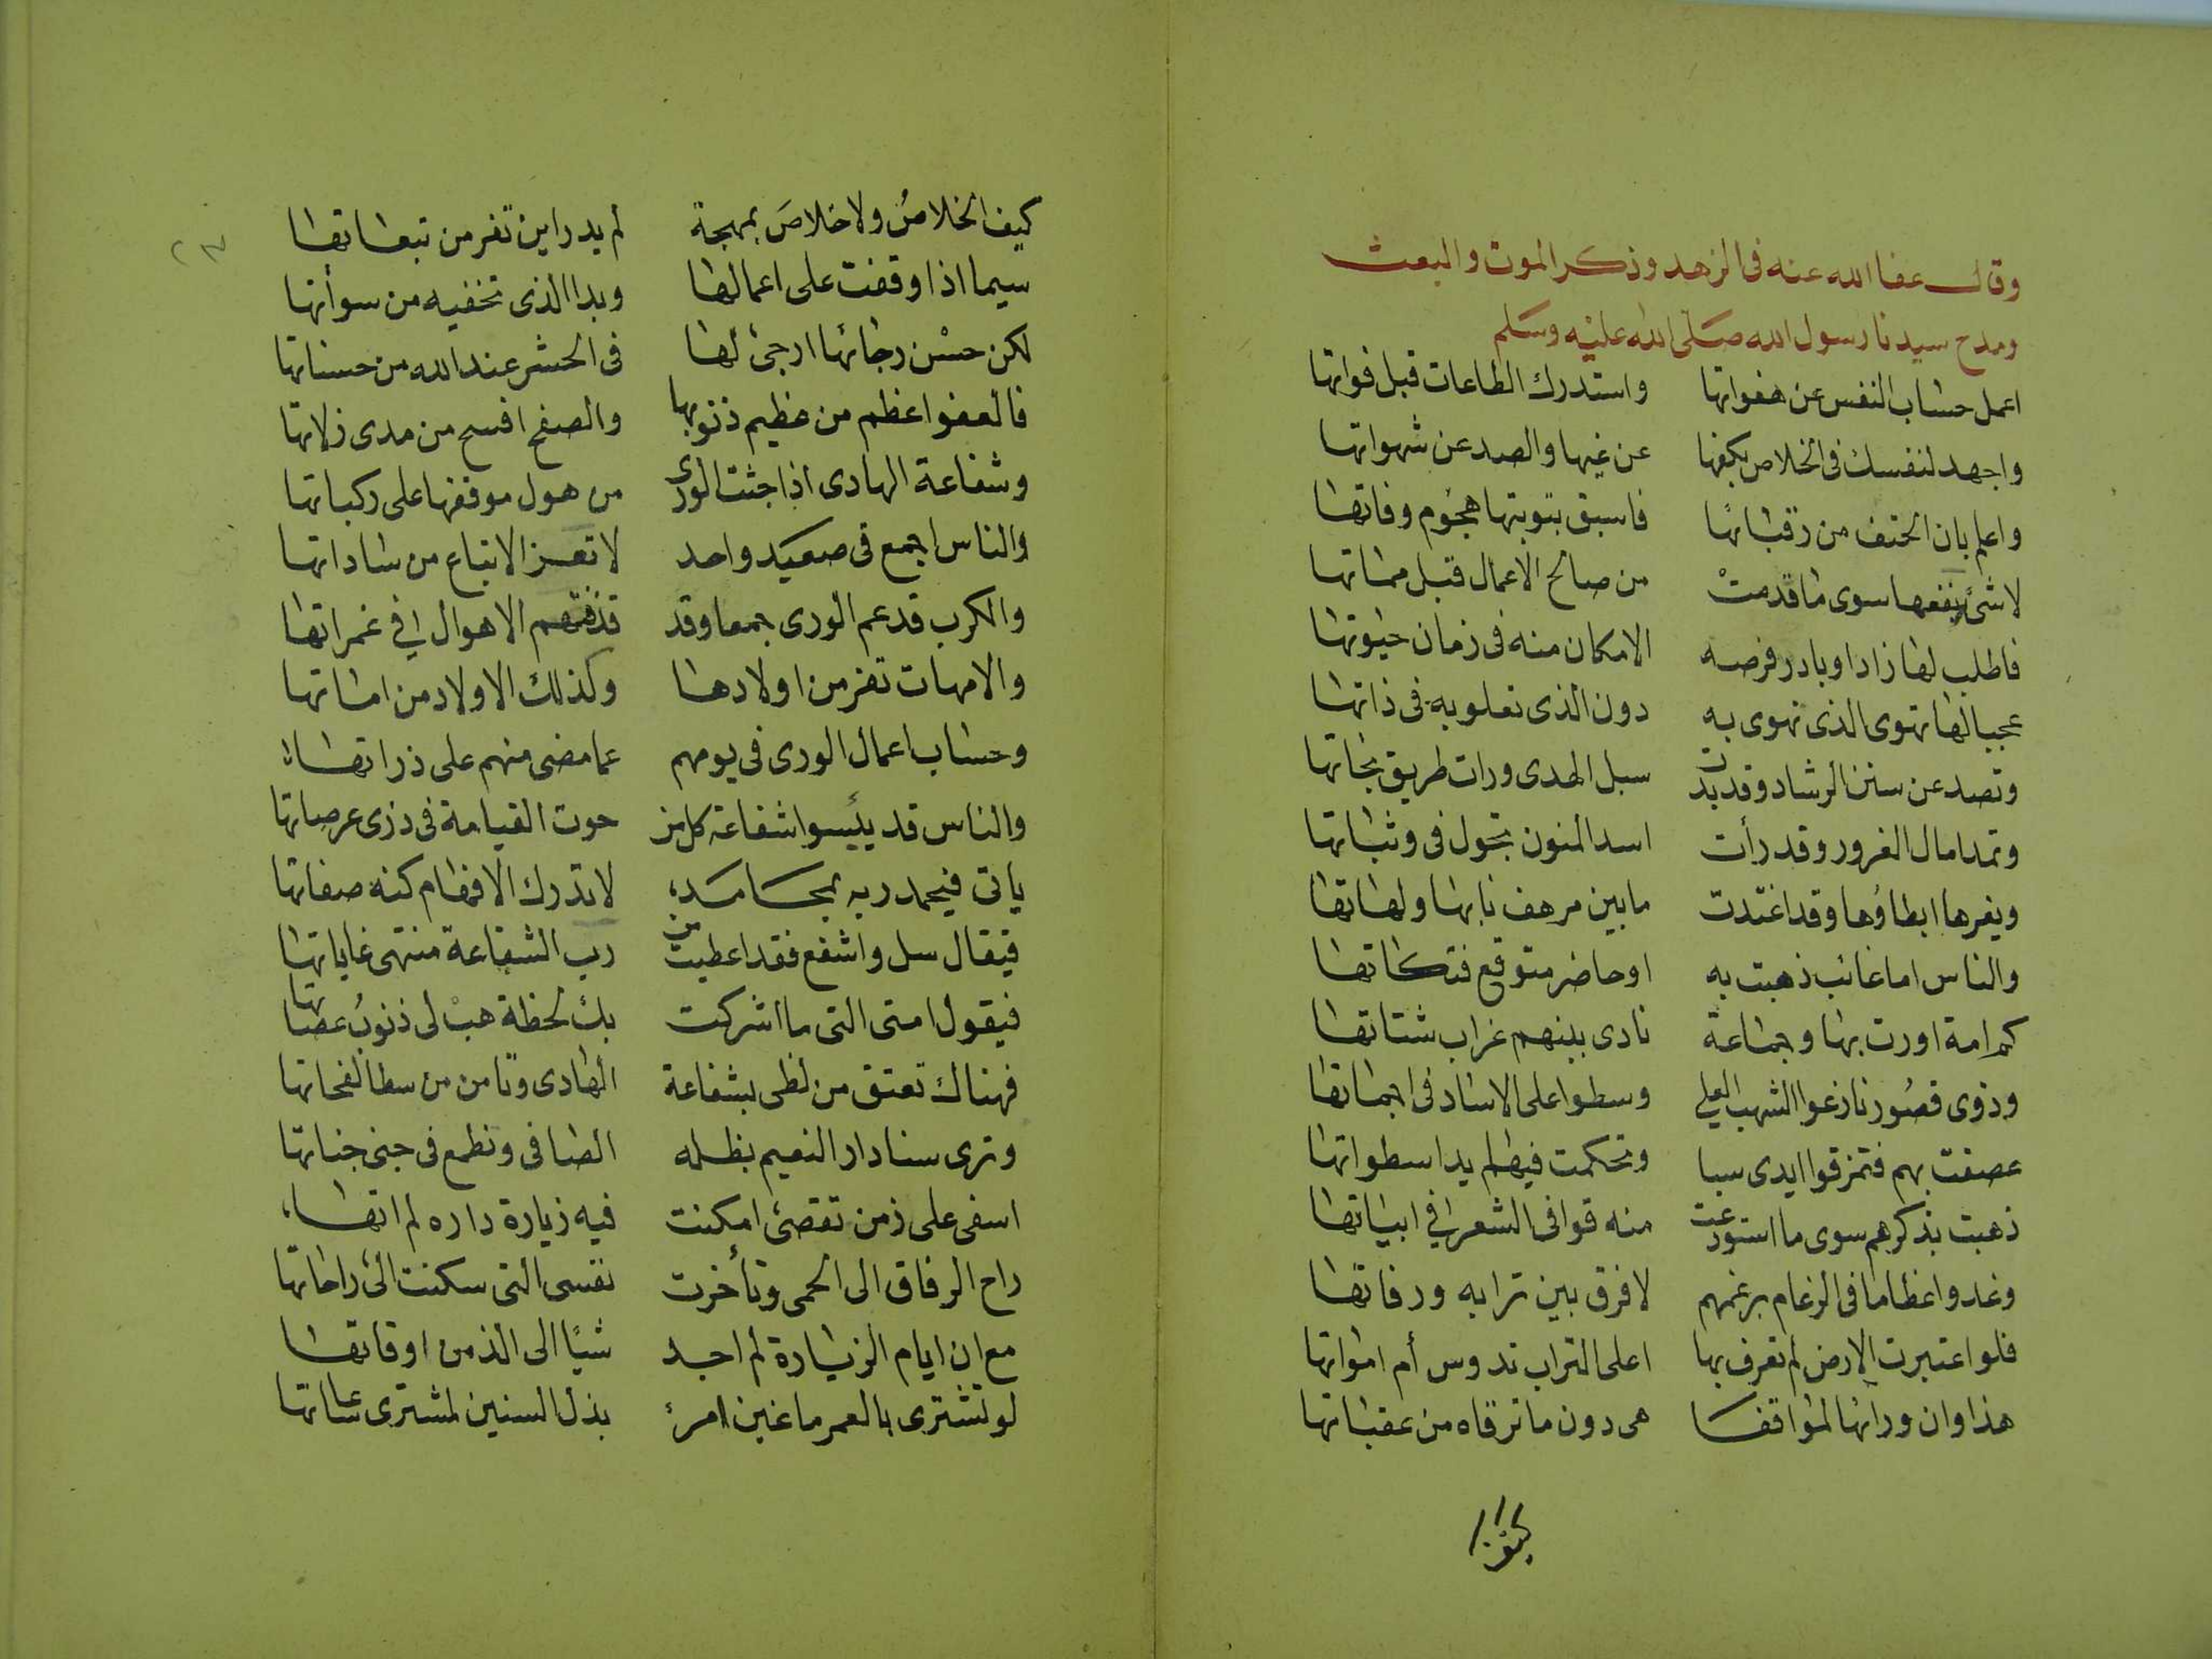 وقال عفا الله عنه فى الزهد وذكر الموت والبعث
ومدح سيدنا رسول الله صلى الله عليه وسلم
اعمل حساب النفس عن هفواتها واستدرك الطاعات قبل فواتها
واجهد لنفسك فى الخلاص بكفها عن غيها والصد عن شهواتها
واعلم بان الحتف من رقبائها فاسبق بتوبتها هجوم وفاتها
لا شئ ينفعها سوى ما قدمتْ من صالح الاعمال قبل مماتها
فاطلب لها زادا وبادر فرصه الامكان منه فى زمان حيوتها
عجبا لها تهوى الذى تهوى به دون الذى تعلو به فى ذاتها
وتصد عن سنن الرشاد وقد بدت سبل الهدى ورات طريق نجاتها
وتمد امال الغرور وقد رأت اسد المنون تجول فى وثباتها
ويغرها ابطاؤها وقد اغتدت ما بين مرهف نابها ولهاتها
والناس اما غائب ذهبت به او حاضر متوقع فتكاتها
كم امة اورت بها وجماعة نادى بينهم غراب شتاتها
وذوى قصُور نازعوا الشهب العلى وسطوا على الاساد فى اجماتها
عصفت بهم فتمزقوا ايدى سبا وتحكمت فيهم يدا سطواتها
ذهبت بذكرهم سوى ما استودعت منه قوافى الشعر فى ابياتها
وغدوا عظاما فى الرغام برغمهم لا فرق بين ترابه ورفاتها
فلو اعتبرت الارض لم تعرف بها اعلى التراب تدوس أم امواتها
هذا وان ورائها لمواقفا هى دون ما ترقاه من عقباتها
كيف
كيف الخلاصُ ولا خلاصَ بمهجة لم يدر اين تفر من تبعاتها
سيما اذا وقفت على اعمالها وبدا الذى تخفيه من سوأتها
لكن حسْن رجائها ارجئ لها فى الحشر عند الله من حسناتها
فالعفو اعظم من عظيم ذنوبها والصفح افسح من مدى زلاتها
وشفاعة الهادى اذا جثت الورى من هول موقفها على ركباتها
والناس اجمع فى صعيد واحد لا تعرف الاتباع من ساداتها
والكرب قد عم الورى جمعا وقد قذفتهم الاهوال فى غمراتها
والامهات تفر من اولادها وكذلك الاولاد من اماتها
وحساب اعمال الورى فى يومهم عما مضى منهم على ذراتها
والناس قد يئسوا شفاعة كل من حوت القيامة فى ذرى عرصاتها
ياتى فيحمد ربه بمحامد لا تدرك الافهام كنه صفاتها
فيقال سل واشفع فقد اعطيت من رب الشفاعة منتهى غاياتها
فيقول امتى التى ما اشركت بك لحظة هبْ لى ذنوبُ عصاتها
فهناك تعتق من لظى بشفاعة الهادى وتامن من سطا لفحاتها
وترى سنا دار النعيم بظله الصافى ونطمع فى جنى جناتها
اسفى على زمن تقضئ امكنت فيه زيارة داره لم اتها
راح الرفاق الى الحمى وتأخرت نفسى التى سكنت الئ راحاتها
مع ان ايام الزيارة لم اجد شيًا الى الذ من اوقاتها
لو تشترى بالعمر ما غبن امرئ بذل السنين لمشترى ساعاتها
٢٣